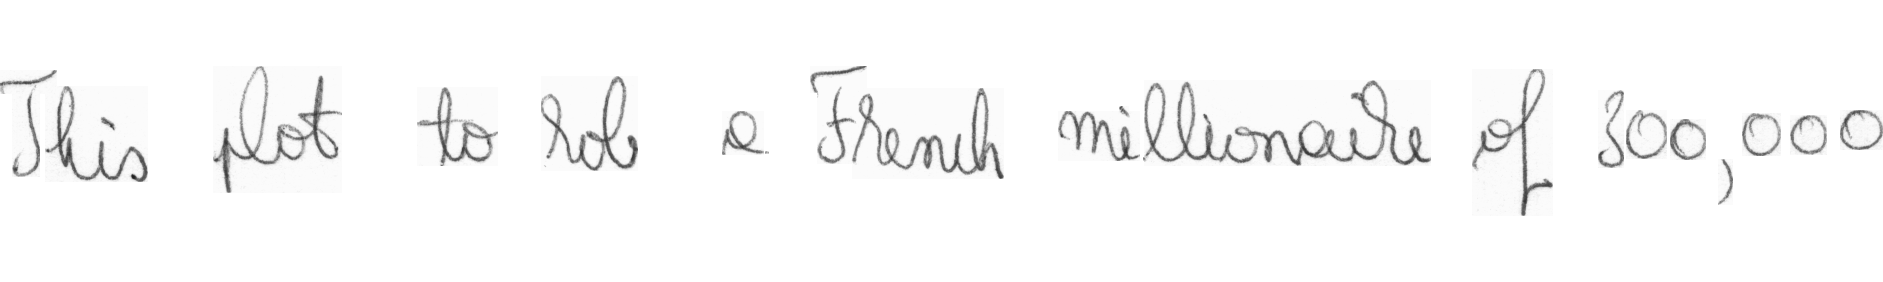 This plot to rob a French millionaire of 300,000